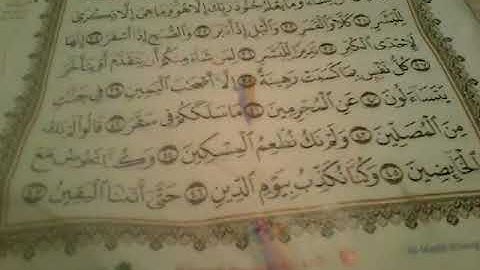 يَشَاءُ وَمَا يَعْلَمُ جُنُودَ رَبِّكَ إِلَّا هُوَ وَمَا هِيَ إِلَّا ذِكْرَىٰ
لِلْبَشَرِ ٣١ كَلَّا وَالْقَمَرِ ٣٢ وَاللَّيْلِ إِذْ أَدْبَرَ ٣٣ وَالصُّبْحِ إِذَا أَسْفَرَ ٣٤ إِنَّهَا
لَإِحْدَى الْكُبَرِ ٣٥ نَذِيرًا لِلْبَشَرِ ٣٦ لِمَن شَاءَ مِنكُمْ أَن يَتَقَدَّمَ أَوْ يَتَأَخَّرَ
٣٧ كُلُّ نَفْسٍ بِمَا كَسَبَتْ رَهِينَةٌ ٣٨ إِلَّا أَصْحَٰبَ الْيَمِينِ ٣٩ فِي جَنَّٰتٍ
يَتَسَاءَلُونَ ٤٠ عَنِ الْمُجْرِمِينَ ٤١ مَا سَلَكَكُمْ فِي سَقَرَ ٤٢ قَالُوا لَمْ نَكُ
مِنَ الْمُصَلِّينَ ٤٣ وَلَمْ نَكُ نُطْعِمُ الْمِسْكِينَ ٤٤ وَكُنَّا نَخُوضُ مَعَ
الْخَائِضِينَ ٤٥ وَكُنَّا نُكَذِّبُ بِيَوْمِ الدِّينِ ٤٦ حَتَّىٰ أَتَىٰنَا الْيَقِينُ ٤٧